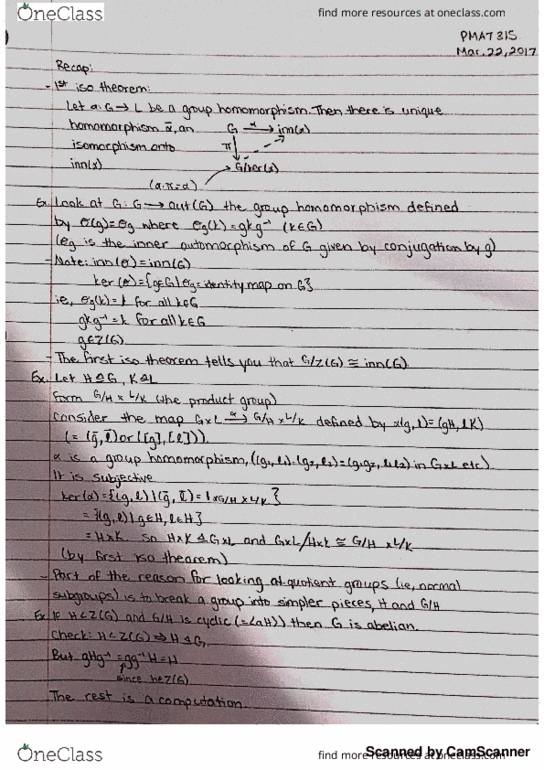 OneClass
find more resources at oneclass.com
PMAT 315
Mar. 22, 2017
Recap:
- 1st iso theorem:
Let α: G → L be a group homomorphism. Then there is unique
homomorphism ᾱ, an G →α inn(α)
isomorphism onto π
inn(α) G/ker(α)
(α·π=α)
Ex. Look at G: G → aut(G) the group homomorphism defined
by σ(g)=σg where σg(k)=gkg⁻¹ (k∈G)
(σg is the inner automorphism of G given by conjugation by g)
- Note: inn(σ)=inn(G)
ker(σ)={g∈G | σg=identity map on G}
ie, σg(k)=k for all k∈G
gkg⁻¹=k for all k∈G
g∈Z(G)
- The first iso theorem tells you that G/Z(G) ≅ inn(G)
Ex. Let H⊴G, K⊴L
Form G/H × L/K (the product group)
Consider the map G×L →α G/H × L/K defined by α(g, l)=(gH, lK)
(= (ḡ, l̄) or ([g], [l])).
α is a group homomorphism, ((g₁, l₁)·(g₂, l₂)=(g₁g₂, l₁l₂) in G×L etc)
It is subjective
ker(α)={(g, l) | (ḡ, l̄) = 1G/H × L/K}
= {(g, l) | g∈H, l∈H}
= H×K so H×K ⊴ G×L and G×L/H×K ≅ G/H × L/K
(by first iso theorem)
- Part of the reason for looking at quotient groups (ie, normal
subgroups) is to break a group into simpler pieces, H and G/H
Ex. If H⊂Z(G) and G/H is cyclic (=⟨aH⟩) then G is abelian.
Check: H⊂Z(G) ⇒ H⊴G,
But gHg⁻¹ = gg⁻¹H=H
since h∈Z(G)
The rest is a computation.
OneClass
find more resources at oneclass.com
Scanned by CamScanner